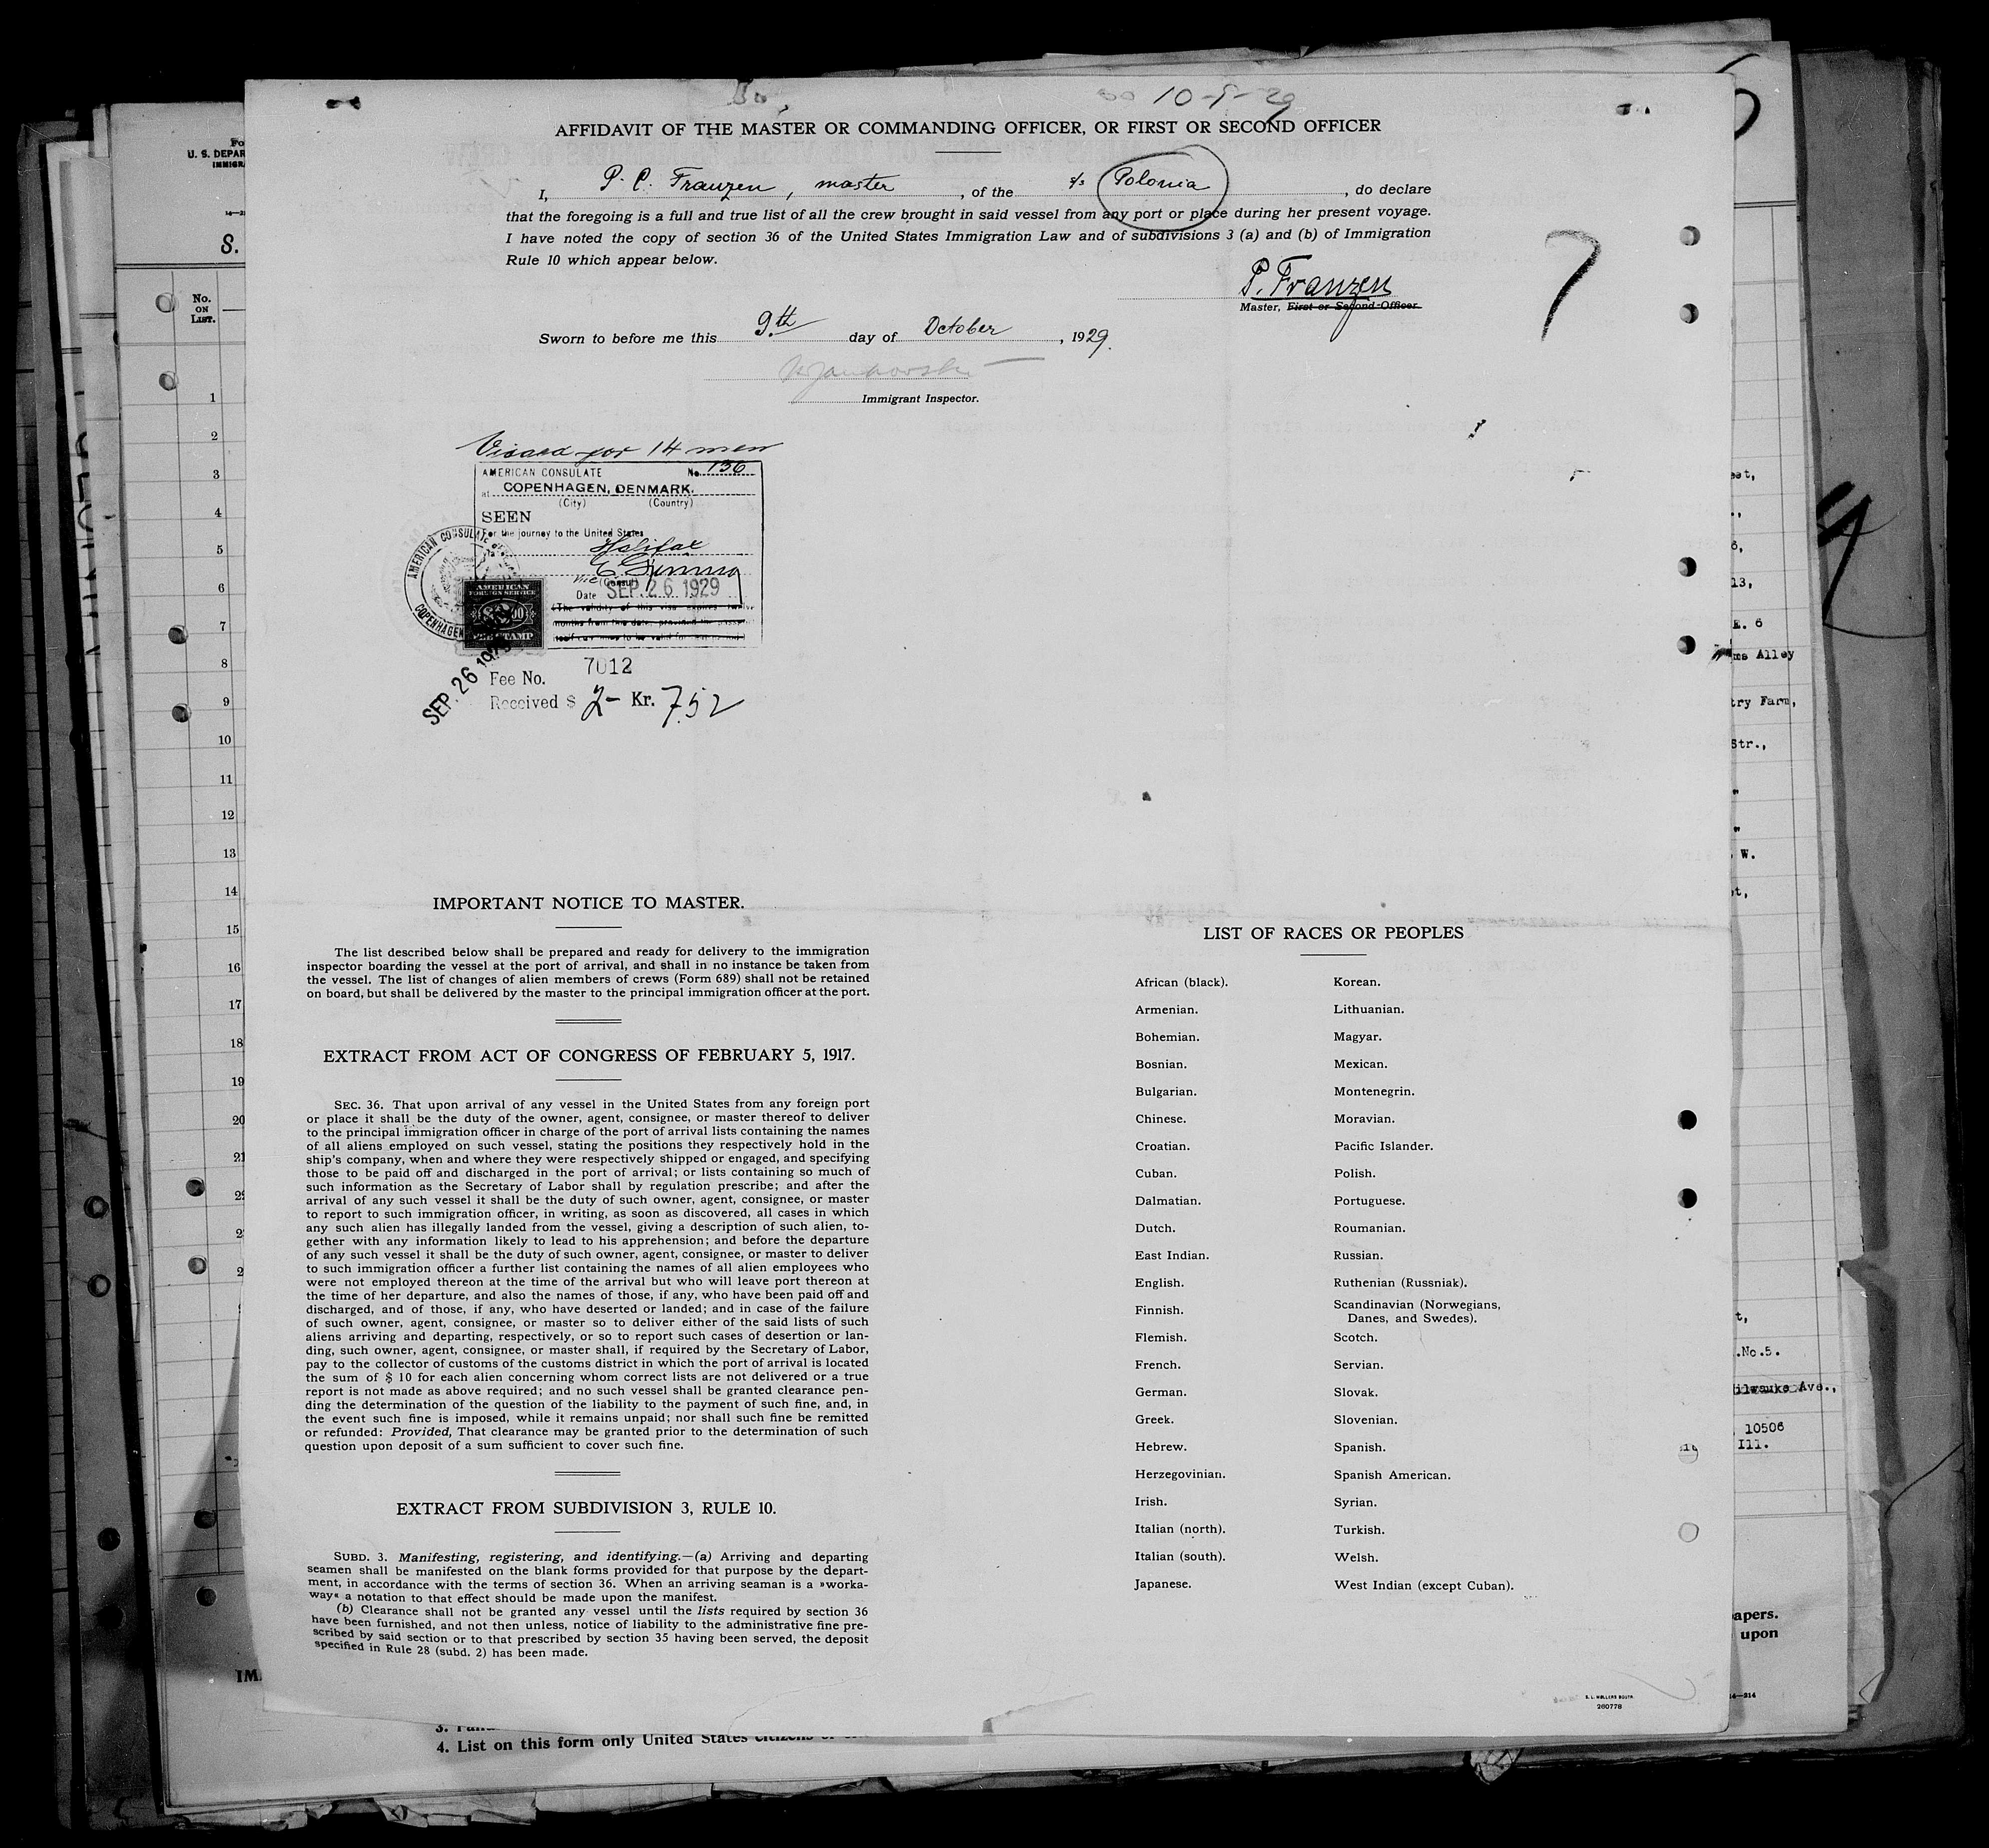 10-9-29
AFFIDAVIT OF THE MASTER OR COMMANDING OFFICER, OR FIRST OR SECOND OFFICER
I, P. C. Franzen, master, of the s/s Polonia, do declare
that the foregoing is a full and true list of all the crew brought in said vessel from any port or place during her present voyage.
I have noted the copy of section 36 of the United States Immigration Law and of subdivisions 3 (a) and (b) of Immigration
Rule 10 which appear below.
P. Franzen
Master, First or Second Officer
7
Sworn to before me this 9th day of October, 1929.
Immigrant Inspector.
Visaed for 14 men
AMERICAN CONSULATE No. 136
at COPENHAGEN, DENMARK.
(City) (Country)
SEEN
For the journey to the United States
Halifax
Vice (Consul)
Date SEP. 26 1929
(The validity of this visa expires twelve
months from this date, provided the pass-
AMERICAN CONSULATE
COPENHAGEN
AMERICAN
FOREIGN SERVICE
FEE STAMP
SEP. 26 1929
Fee No. 7012
Received $ 2- Kr. 7.52
IMPORTANT NOTICE TO MASTER.
The list described below shall be prepared and ready for delivery to the immigration
inspector boarding the vessel at the port of arrival, and shall in no instance be taken from
the vessel. The list of changes of alien members of crews (Form 689) shall not be retained
on board, but shall be delivered by the master to the principal immigration officer at the port.
EXTRACT FROM ACT OF CONGRESS OF FEBRUARY 5, 1917.
SEC. 36. That upon arrival of any vessel in the United States from any foreign port
or place it shall be the duty of the owner, agent, consignee, or master thereof to deliver
to the principal immigration officer in charge of the port of arrival lists containing the names
of all aliens employed on such vessel, stating the positions they respectively hold in the
ship's company, when and where they were respectively shipped or engaged, and specifying
those to be paid off and discharged in the port of arrival; or lists containing so much of
such information as the Secretary of Labor shall by regulation prescribe; and after the
arrival of any such vessel it shall be the duty of such owner, agent, consignee, or master
to report to such immigration officer, in writing, as soon as discovered, all cases in which
any such alien has illegally landed from the vessel, giving a description of such alien, to-
gether with any information likely to lead to his apprehension; and before the departure
of any such vessel it shall be the duty of such owner, agent, consignee, or master to deliver
to such immigration officer a further list containing the names of all alien employees who
were not employed thereon at the time of the arrival but who will leave port thereon at
the time of her departure, and also the names of those, if any, who have been paid off and
discharged, and of those, if any, who have deserted or landed; and in case of the failure
of such owner, agent, consignee, or master so to deliver either of the said lists of such
aliens arriving and departing, respectively, or so to report such cases of desertion or lan-
ding, such owner, agent, consignee, or master shall, if required by the Secretary of Labor,
pay to the collector of customs of the customs district in which the port of arrival is located
the sum of $ 10 for each alien concerning whom correct lists are not delivered or a true
report is not made as above required; and no such vessel shall be granted clearance pen-
ding the determination of the question of the liability to the payment of such fine, and, in
the event such fine is imposed, while it remains unpaid; nor shall such fine be remitted
or refunded: Provided, That clearance may be granted prior to the determination of such
question upon deposit of a sum sufficient to cover such fine.
EXTRACT FROM SUBDIVISION 3, RULE 10.
SUBD. 3. Manifesting, registering, and identifying.—(a) Arriving and departing
seamen shall be manifested on the blank forms provided for that purpose by the depart-
ment, in accordance with the terms of section 36. When an arriving seaman is a »worka-
way« a notation to that effect should be made upon the manifest.
(b) Clearance shall not be granted any vessel until the lists required by section 36
have been furnished, and not then unless, notice of liability to the administrative fine pre-
scribed by said section or to that prescribed by section 35 having been served, the deposit
specified in Rule 28 (subd. 2) has been made.
LIST OF RACES OR PEOPLES
African (black). Korean.
Armenian. Lithuanian.
Bohemian. Magyar.
Bosnian. Mexican.
Bulgarian. Montenegrin.
Chinese. Moravian.
Croatian. Pacific Islander.
Cuban. Polish.
Dalmatian. Portuguese.
Dutch. Roumanian.
East Indian. Russian.
English. Ruthenian (Russniak).
Finnish. Scandinavian (Norwegians,
Danes, and Swedes).
Flemish. Scotch.
French. Servian.
German. Slovak.
Greek. Slovenian.
Hebrew. Spanish.
Herzegovinian. Spanish American.
Irish. Syrian.
Italian (north). Turkish.
Italian (south). Welsh.
Japanese. West Indian (except Cuban).
260778
U. S. DEPAR
IMMIGRA
S.
No.
ON
LIST.
1
2
3
4
5
6
7
8
9
10
11
12
13
14
15
16
17
18
19
20
21
13,
R. 6
Alley
try Farm,
Str.,
W.
.No.5.
ilwauke Ave.,
10506
Ill.
apers.
upon
14—214
IM
4. List on this form only United States citizens